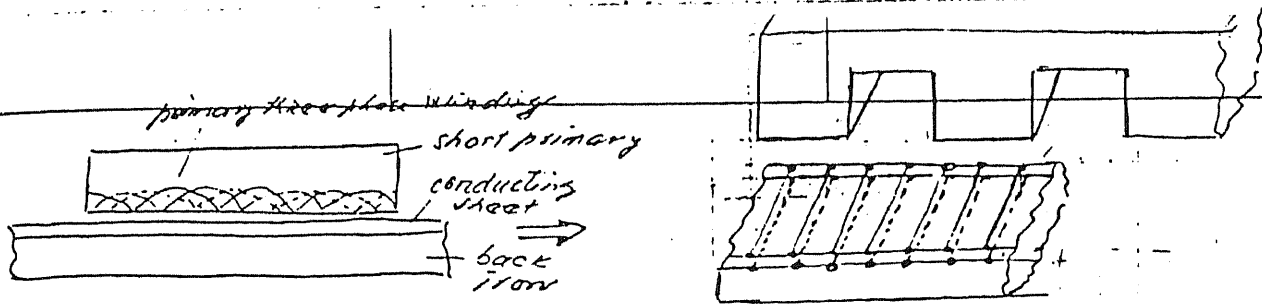 primary three phase windings
short primary
conducting
sheet
back
iron